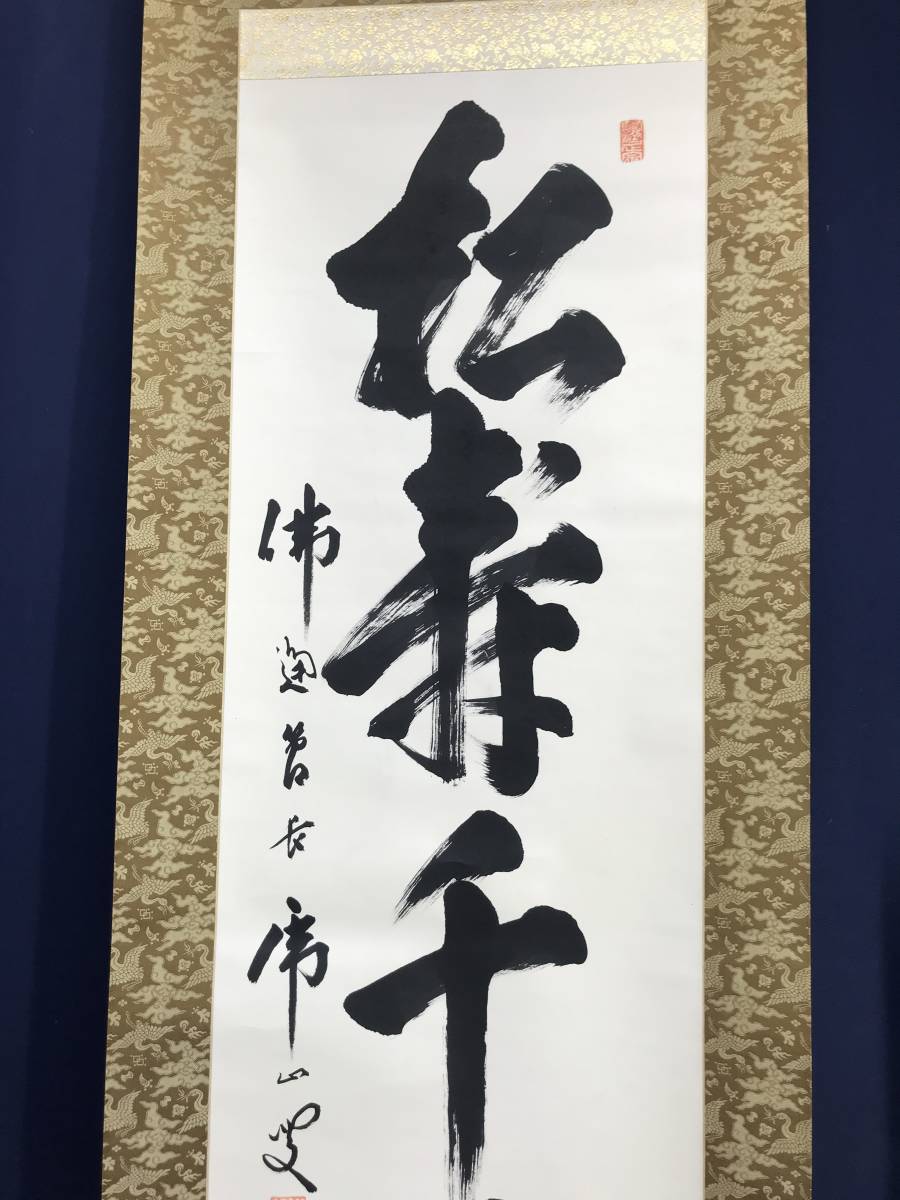 松寿千
佛通管長
虎山叟